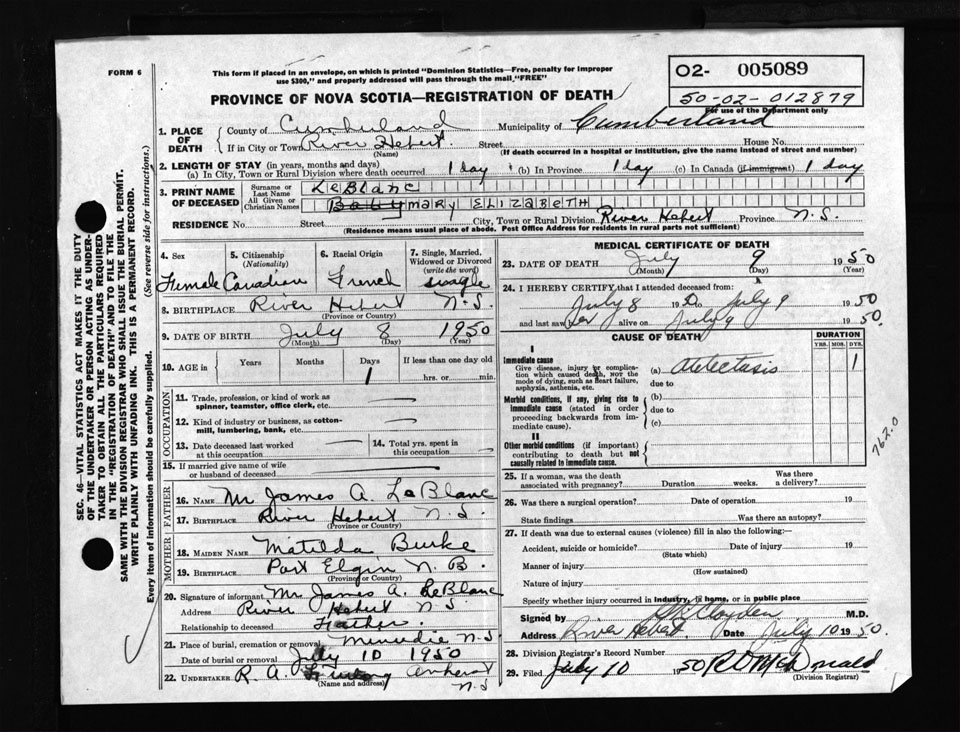 FORM 6
This form if placed in an envelope, on which is printed "Dominion Statistics—Free, penalty for improper
use $300," and properly addressed will pass through the mail "FREE"
O2- 005089
50-02-012879
For use of the Department only
PROVINCE OF NOVA SCOTIA—REGISTRATION OF DEATH
1. PLACE OF DEATH
County of Cumberland Municipality of Cumberland
If in City or Town River Hebert Street House No.
(Name) (If death occurred in a hospital or institution, give the name instead of street and number)
2. LENGTH OF STAY (in years, months and days)
(a) In City, Town or Rural Division where death occurred 1 day (b) In Province 1 day (c) In Canada (if immigrant) 1 day
3. PRINT NAME OF DECEASED
Surname or Last Name LeBlanc
All Given or Christian Names Baby MARY ELIZABETH
RESIDENCE No. Street City, Town or Rural Division River Hebert Province N.S.
(Residence means usual place of abode. Post Office Address for residents in rural parts not sufficient)
4. Sex 5. Citizenship (Nationality) 6. Racial Origin 7. Single, Married, Widowed or Divorced (write the word)
Female Canadian French single
8. BIRTHPLACE River Hebert N.S.
(Province or Country)
9. DATE OF BIRTH July 8 1950
(Month) (Day) (Year)
10. AGE in Years Months Days If less than one day old
1 hrs. or min.
OCCUPATION
11. Trade, profession, or kind of work as
spinner, teamster, office clerk, etc.
12. Kind of industry or business, as cotton-
mill, lumbering, bank, etc.
13. Date deceased last worked
at this occupation
14. Total yrs. spent in
this occupation
15. If married give name of wife
or husband of deceased
FATHER
16. NAME Mr James A. LeBlanc
17. BIRTHPLACE River Hebert N.S.
(Province or Country)
MOTHER
18. MAIDEN NAME Matilda Burke
19. BIRTHPLACE Port Elgin N.B.
(Province or Country)
20. Signature of informant Mr James A. LeBlanc
Address River Hebert N.S.
Relationship to deceased Father
21. Place of burial, cremation or removal Minudie N.S
Date of burial or removal July 10 1950
22. UNDERTAKER R. A. Amherst
(Name and address) N.S
MEDICAL CERTIFICATE OF DEATH
23. DATE OF DEATH July 9 1950
(Month) (Day) (Year)
24. I HEREBY CERTIFY that I attended deceased from:
July 8 to July 9 1950
and last saw her alive on July 9 1950.
CAUSE OF DEATH DURATION
YRS. MOS. DYS.
I
Immediate cause
Give disease, injury or complica-
tion which caused death, NOT the
mode of dying, such as heart failure,
asphyxia, asthenia, etc.
(a) Atelectasis 1
due to
Morbid conditions, if any, giving rise to
immediate cause (stated in order
proceeding backwards from im-
mediate cause).
(b)
due to
(c)
II
Other morbid conditions (if important)
contributing to death but not
causally related to immediate cause.
762.0
25. If a woman, was the death
associated with pregnancy? Duration weeks. Was there
a delivery?
26. Was there a surgical operation? Date of operation 19
State findings Was there an autopsy?
27. If death was due to external causes (violence) fill in also the following:—
Accident, suicide or homicide? Date of injury 19
(State which)
Manner of injury
(How sustained)
Nature of injury
Specify whether injury occurred in industry, in home, or in public place
Signed by M.D.
Address River Hebert. Date July 10 1950.
28. Division Registrar's Record Number
29. Filed July 10 1950
(Division Registrar)
SEC. 46—VITAL STATISTICS ACT MAKES IT THE DUTY
OF THE UNDERTAKER OR PERSON ACTING AS UNDER-
TAKER TO OBTAIN ALL THE PARTICULARS REQUIRED
IN THE "REGISTRATION OF DEATH" AND TO FILE THE
SAME WITH THE DIVISION REGISTRAR WHO SHALL ISSUE THE BURIAL PERMIT.
WRITE PLAINLY WITH UNFADING INK. THIS IS A PERMANENT RECORD.
Every item of information should be carefully supplied. (See reverse side for instructions.)